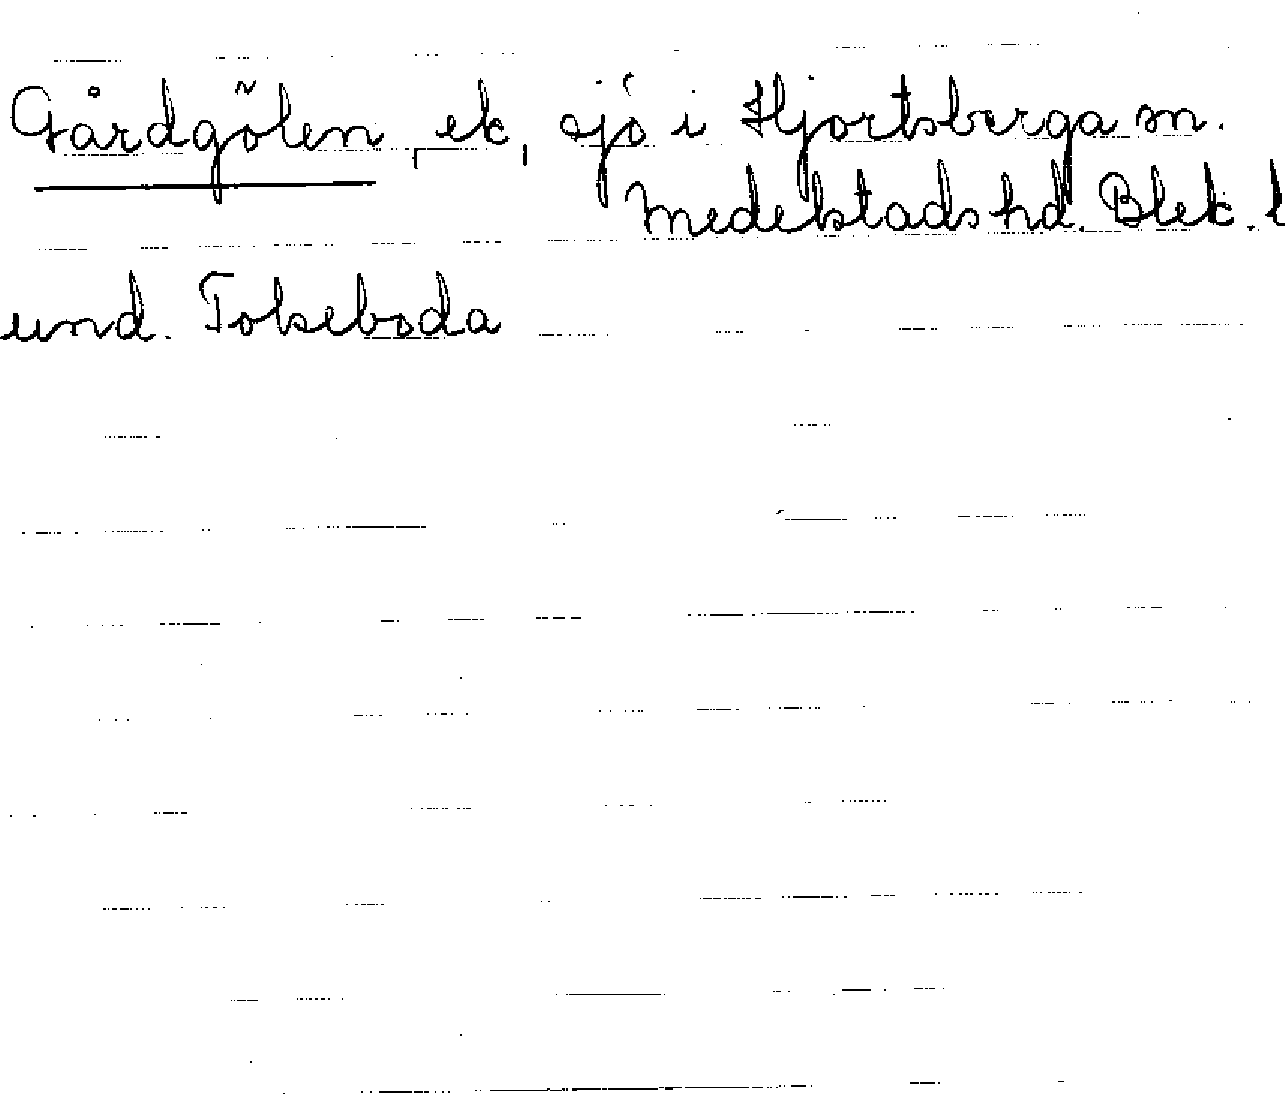 Gårdgölen, ek, sjö i Hjortsberga sn.
Medelstads hd. Blek. l
und. Tolseboda